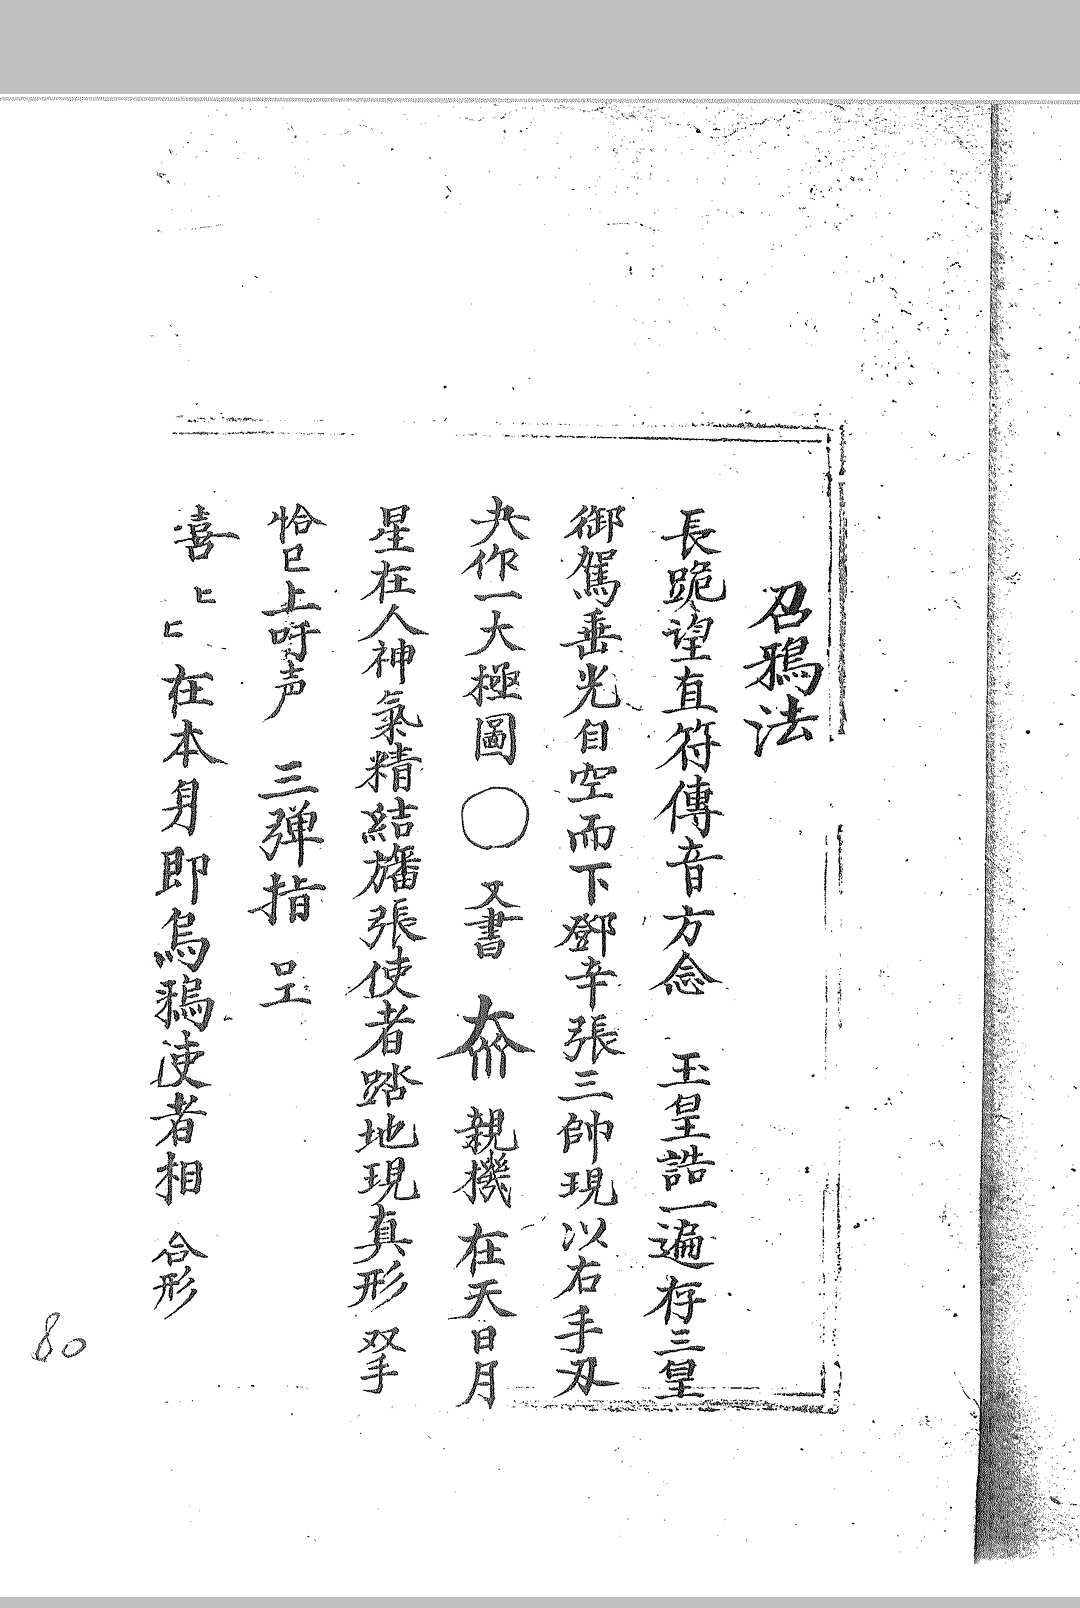 召鴉法
長跪望直符傳音方念　玉皇誥一遍存三皇
御駕垂光自空而下鄧辛張三帥現以右手刄
夬作一大極圖〇又書　親機在天日月
星在人神氣精結旛張使者踏地現真形　双手
恰巳上吁声　三弹指　呈
喜ヒヒ在本身即烏鴉使者相　合形
80